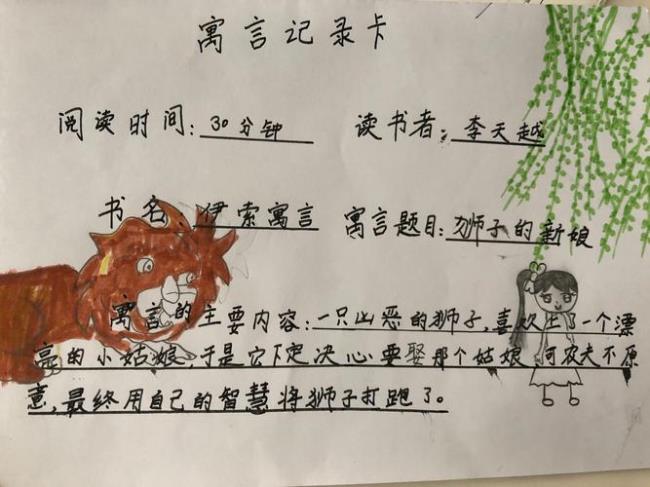 寓言记录卡
阅读时间:30分钟 读书者:李天越
书名:伊索寓言 寓言题目:狮子的新娘
寓言的主要内容:一只凶恶的狮子,喜欢上了一个漂
亮的小姑娘,于是它下定决心要娶那个姑娘,可农夫不原
意,最终用自己的智慧将狮子打跑了。